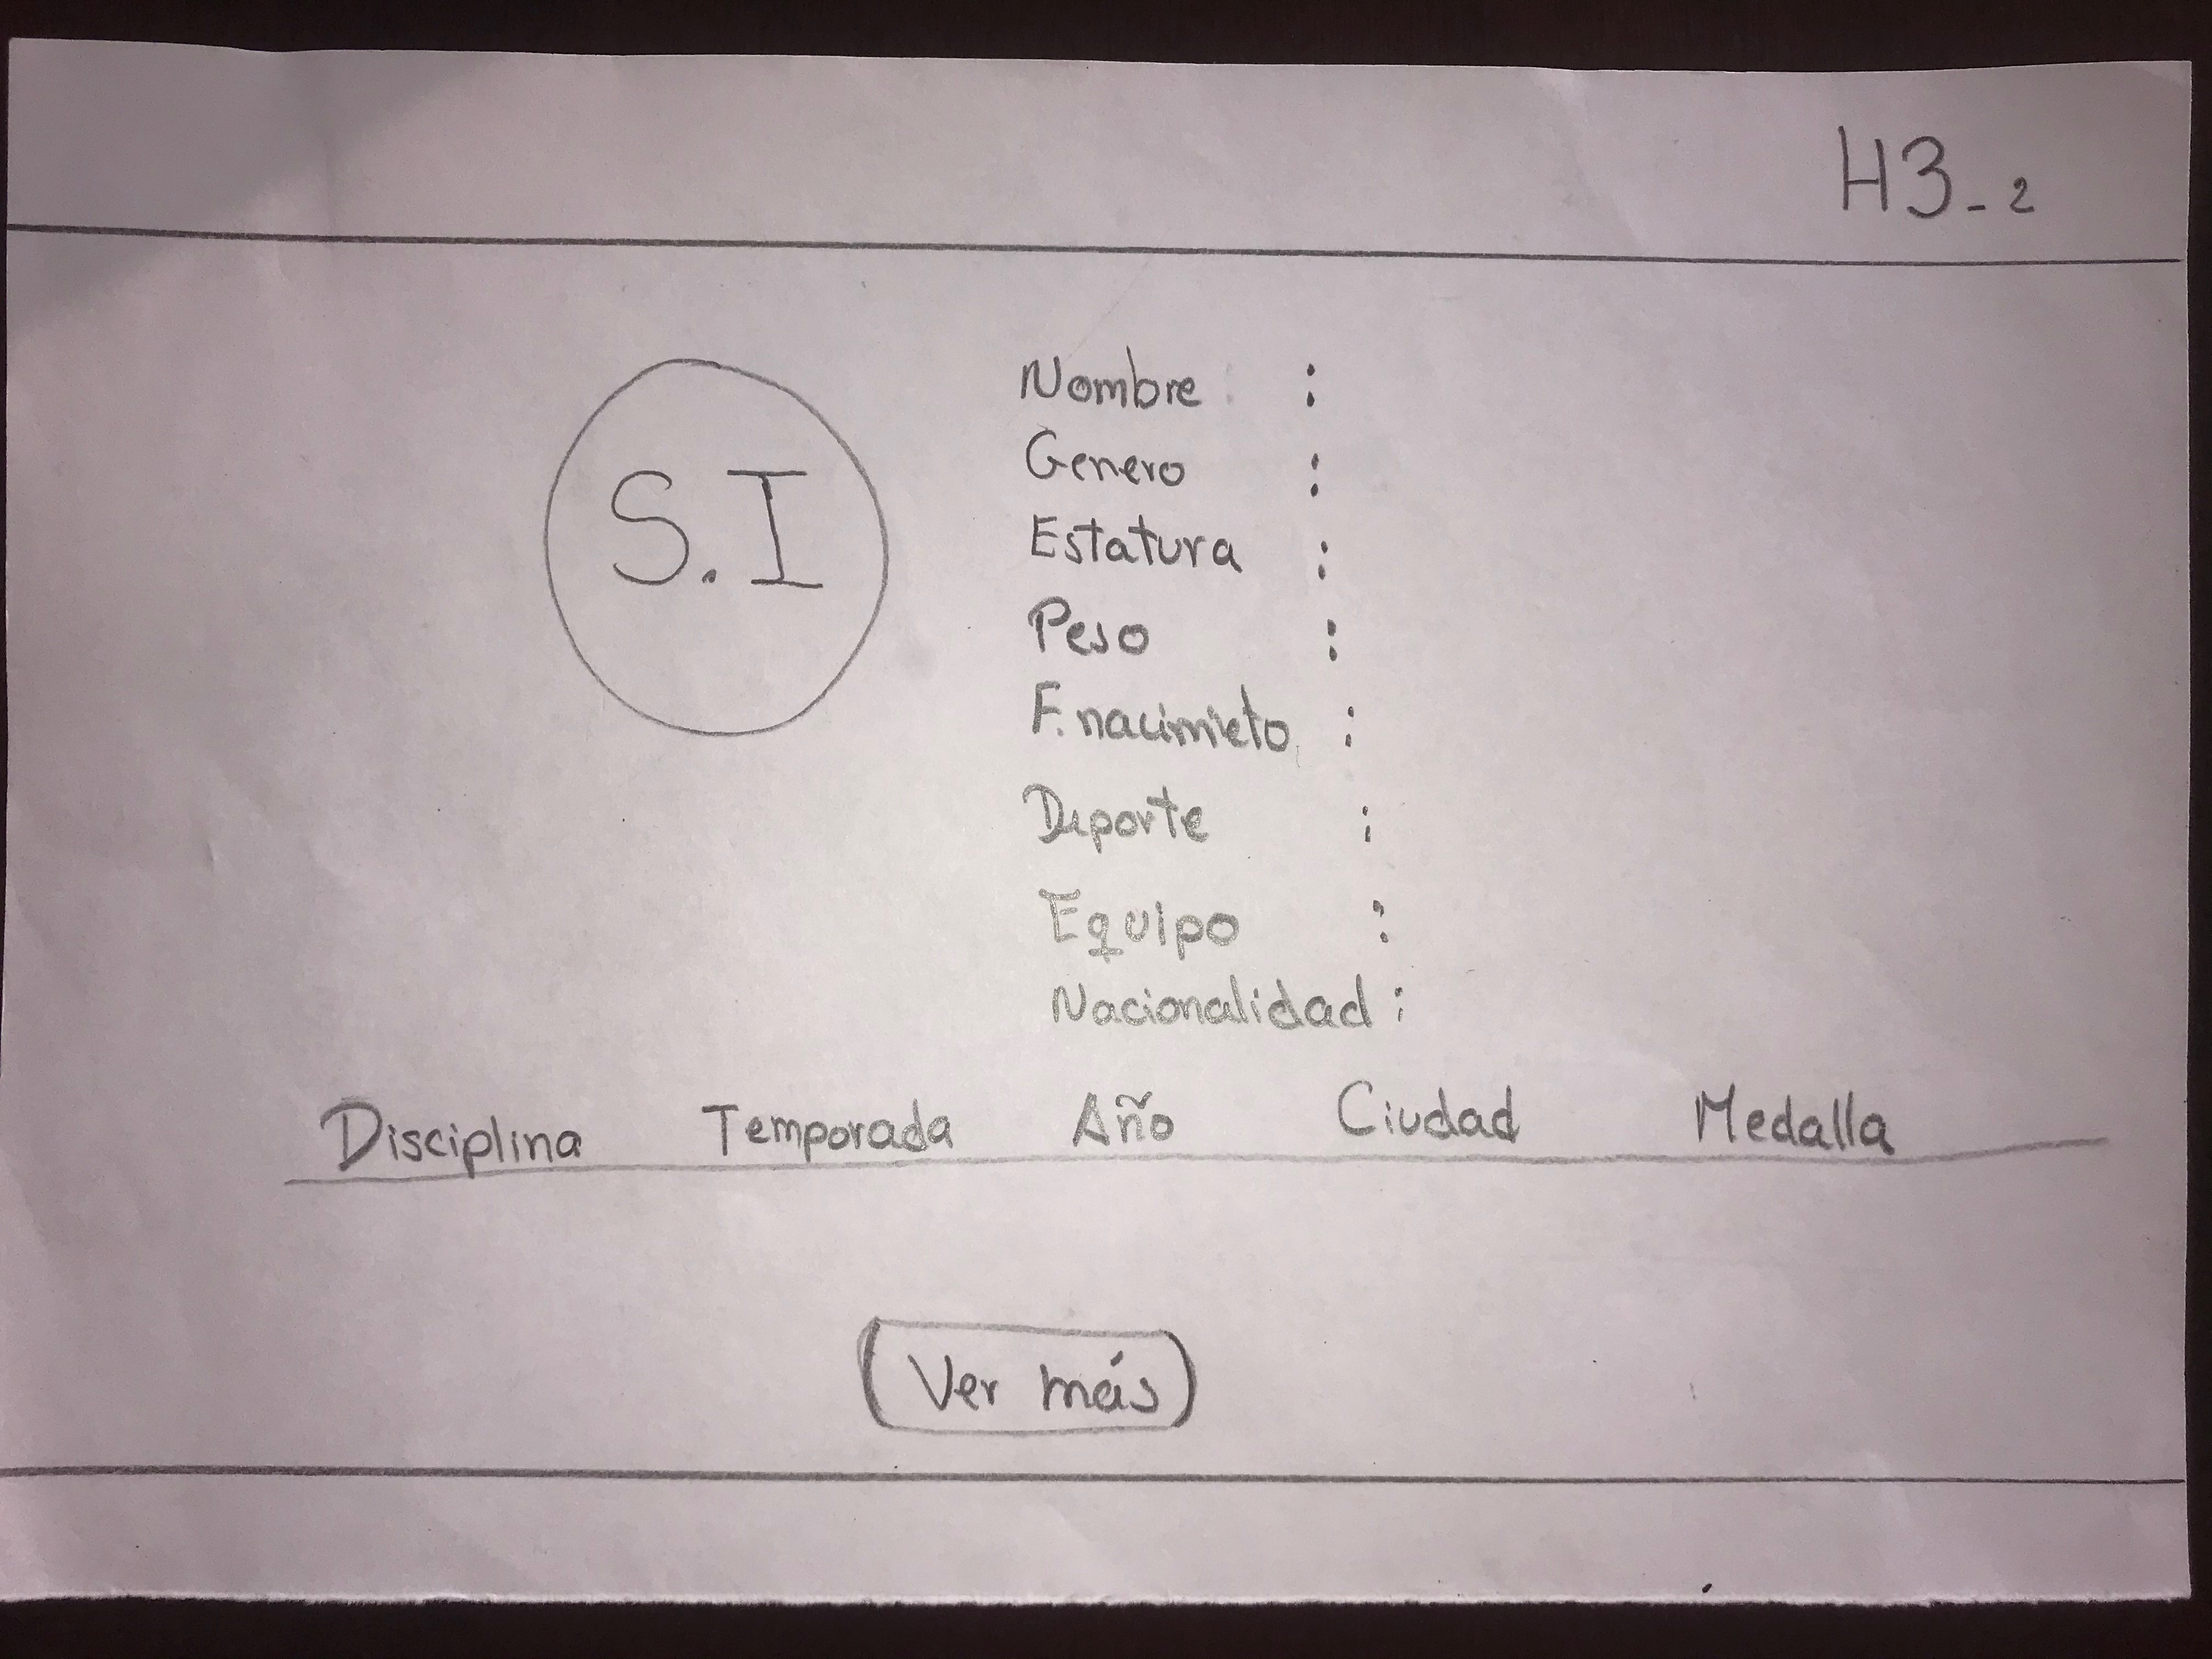 H3-2
S.I
Nombre :
Genero :
Estatura :
Peso :
F. nacimieto :
Deporte :
Equipo :
Nacionalidad :
Disciplina Temporada Año Ciudad Medalla
Ver más